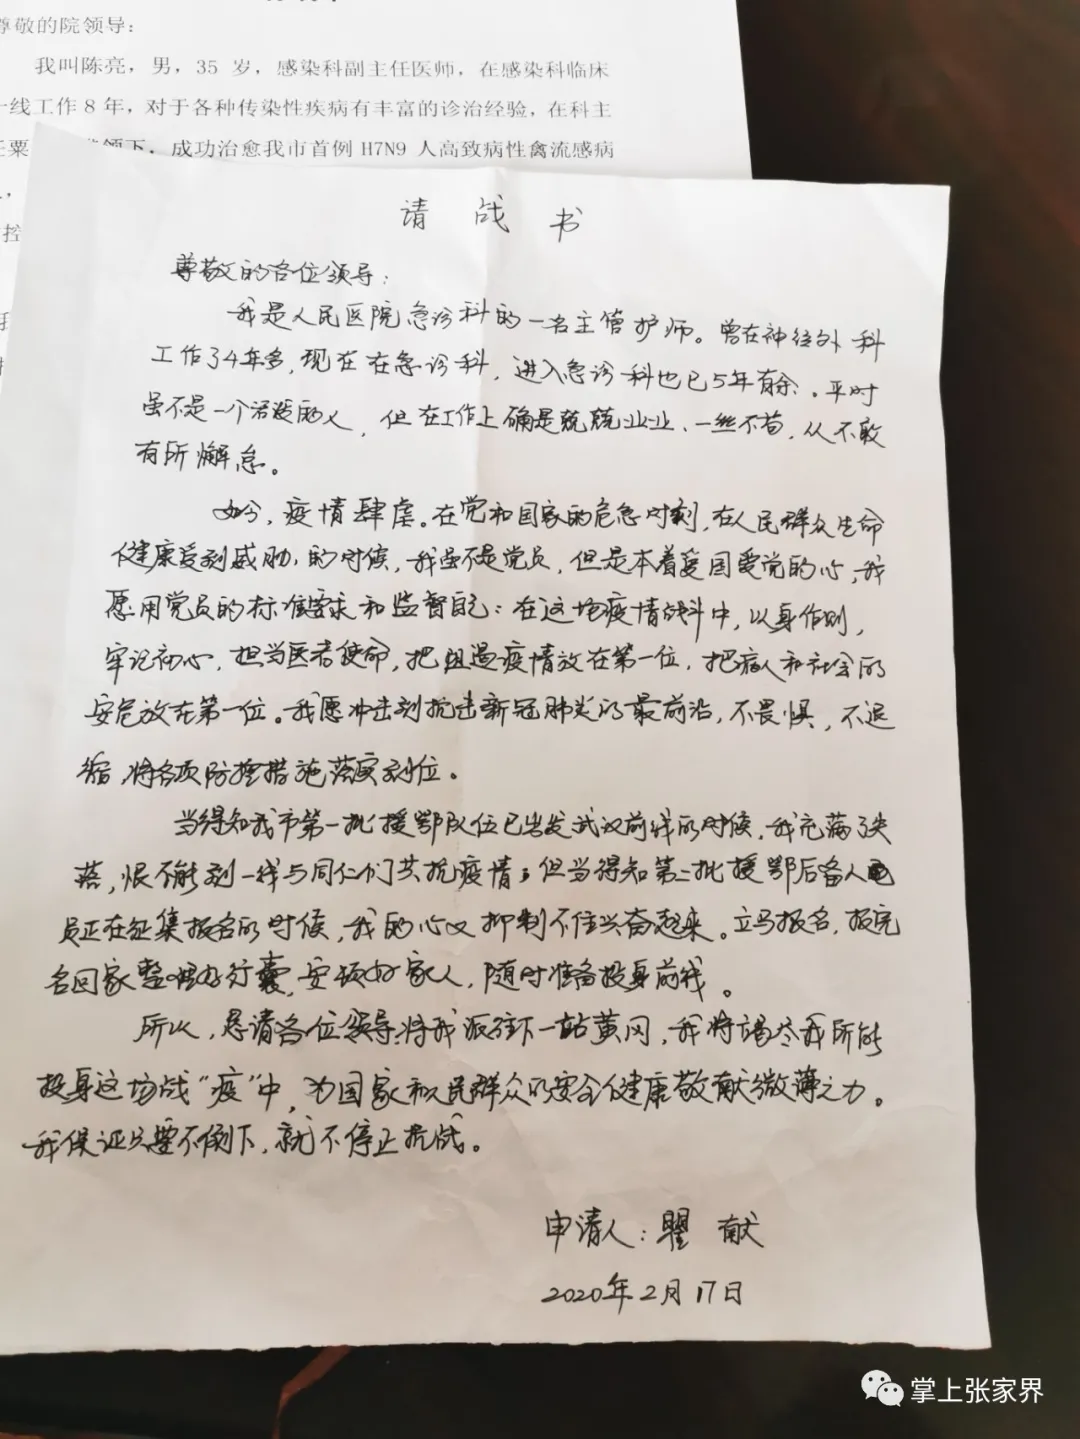 尊敬的院领导：
我叫陈亮，男，35 岁，感染科副主任医师，在感染科临床
一线工作 8 年，对于各种传染性疾病有丰富的诊治经验，在科主
任粟 领下，成功治愈我市首例 H7N9 人高致病性禽流感病
请 战 书
尊敬的各位领导：
我是人民医院急诊科的一名主管护师。曾在神经外科
工作了4年多，现在在急诊科，进入急诊科也已5年有余。平时
虽不是一个活泼的人，但在工作上确是兢兢业业、一丝不苟，从不敢
有所懈怠。
如今，疫情肆虐。在党和国家的危急时刻，在人民群众生命
健康受到威胁的时候，我虽不是党员，但是本着爱国爱党的心，我
愿用党员的标准要求和监督自己：在这场疫情战斗中，以身作则，
牢记初心，担当医者使命，把阻遏疫情放在第一位，把病人和社会的
安危放在第一位。我愿冲击到抗击新冠肺炎的最前沿，不畏惧，不退
缩，将各项防控措施落实到位。
当得知我市第一批援鄂队伍已出发武汉前线的时候，我充满了失
落，恨不能到一线与同仁们共抗疫情；但当得知第二批援鄂后备人
员正在征集报名的时候，我的心又抑制不住兴奋起来。立马报名，报完
名回家整理好行囊，安顿好家人，随时准备投身前线。
所以，恳请各位领导将我派往下一站黄冈，我将竭尽我所能
投身这场战“疫”中，为国家和人民群众的安全健康敬献微薄之力。
我保证只要不倒下，就不停止抗战。
申请人：瞿 献
2020年2月17日
掌上张家界